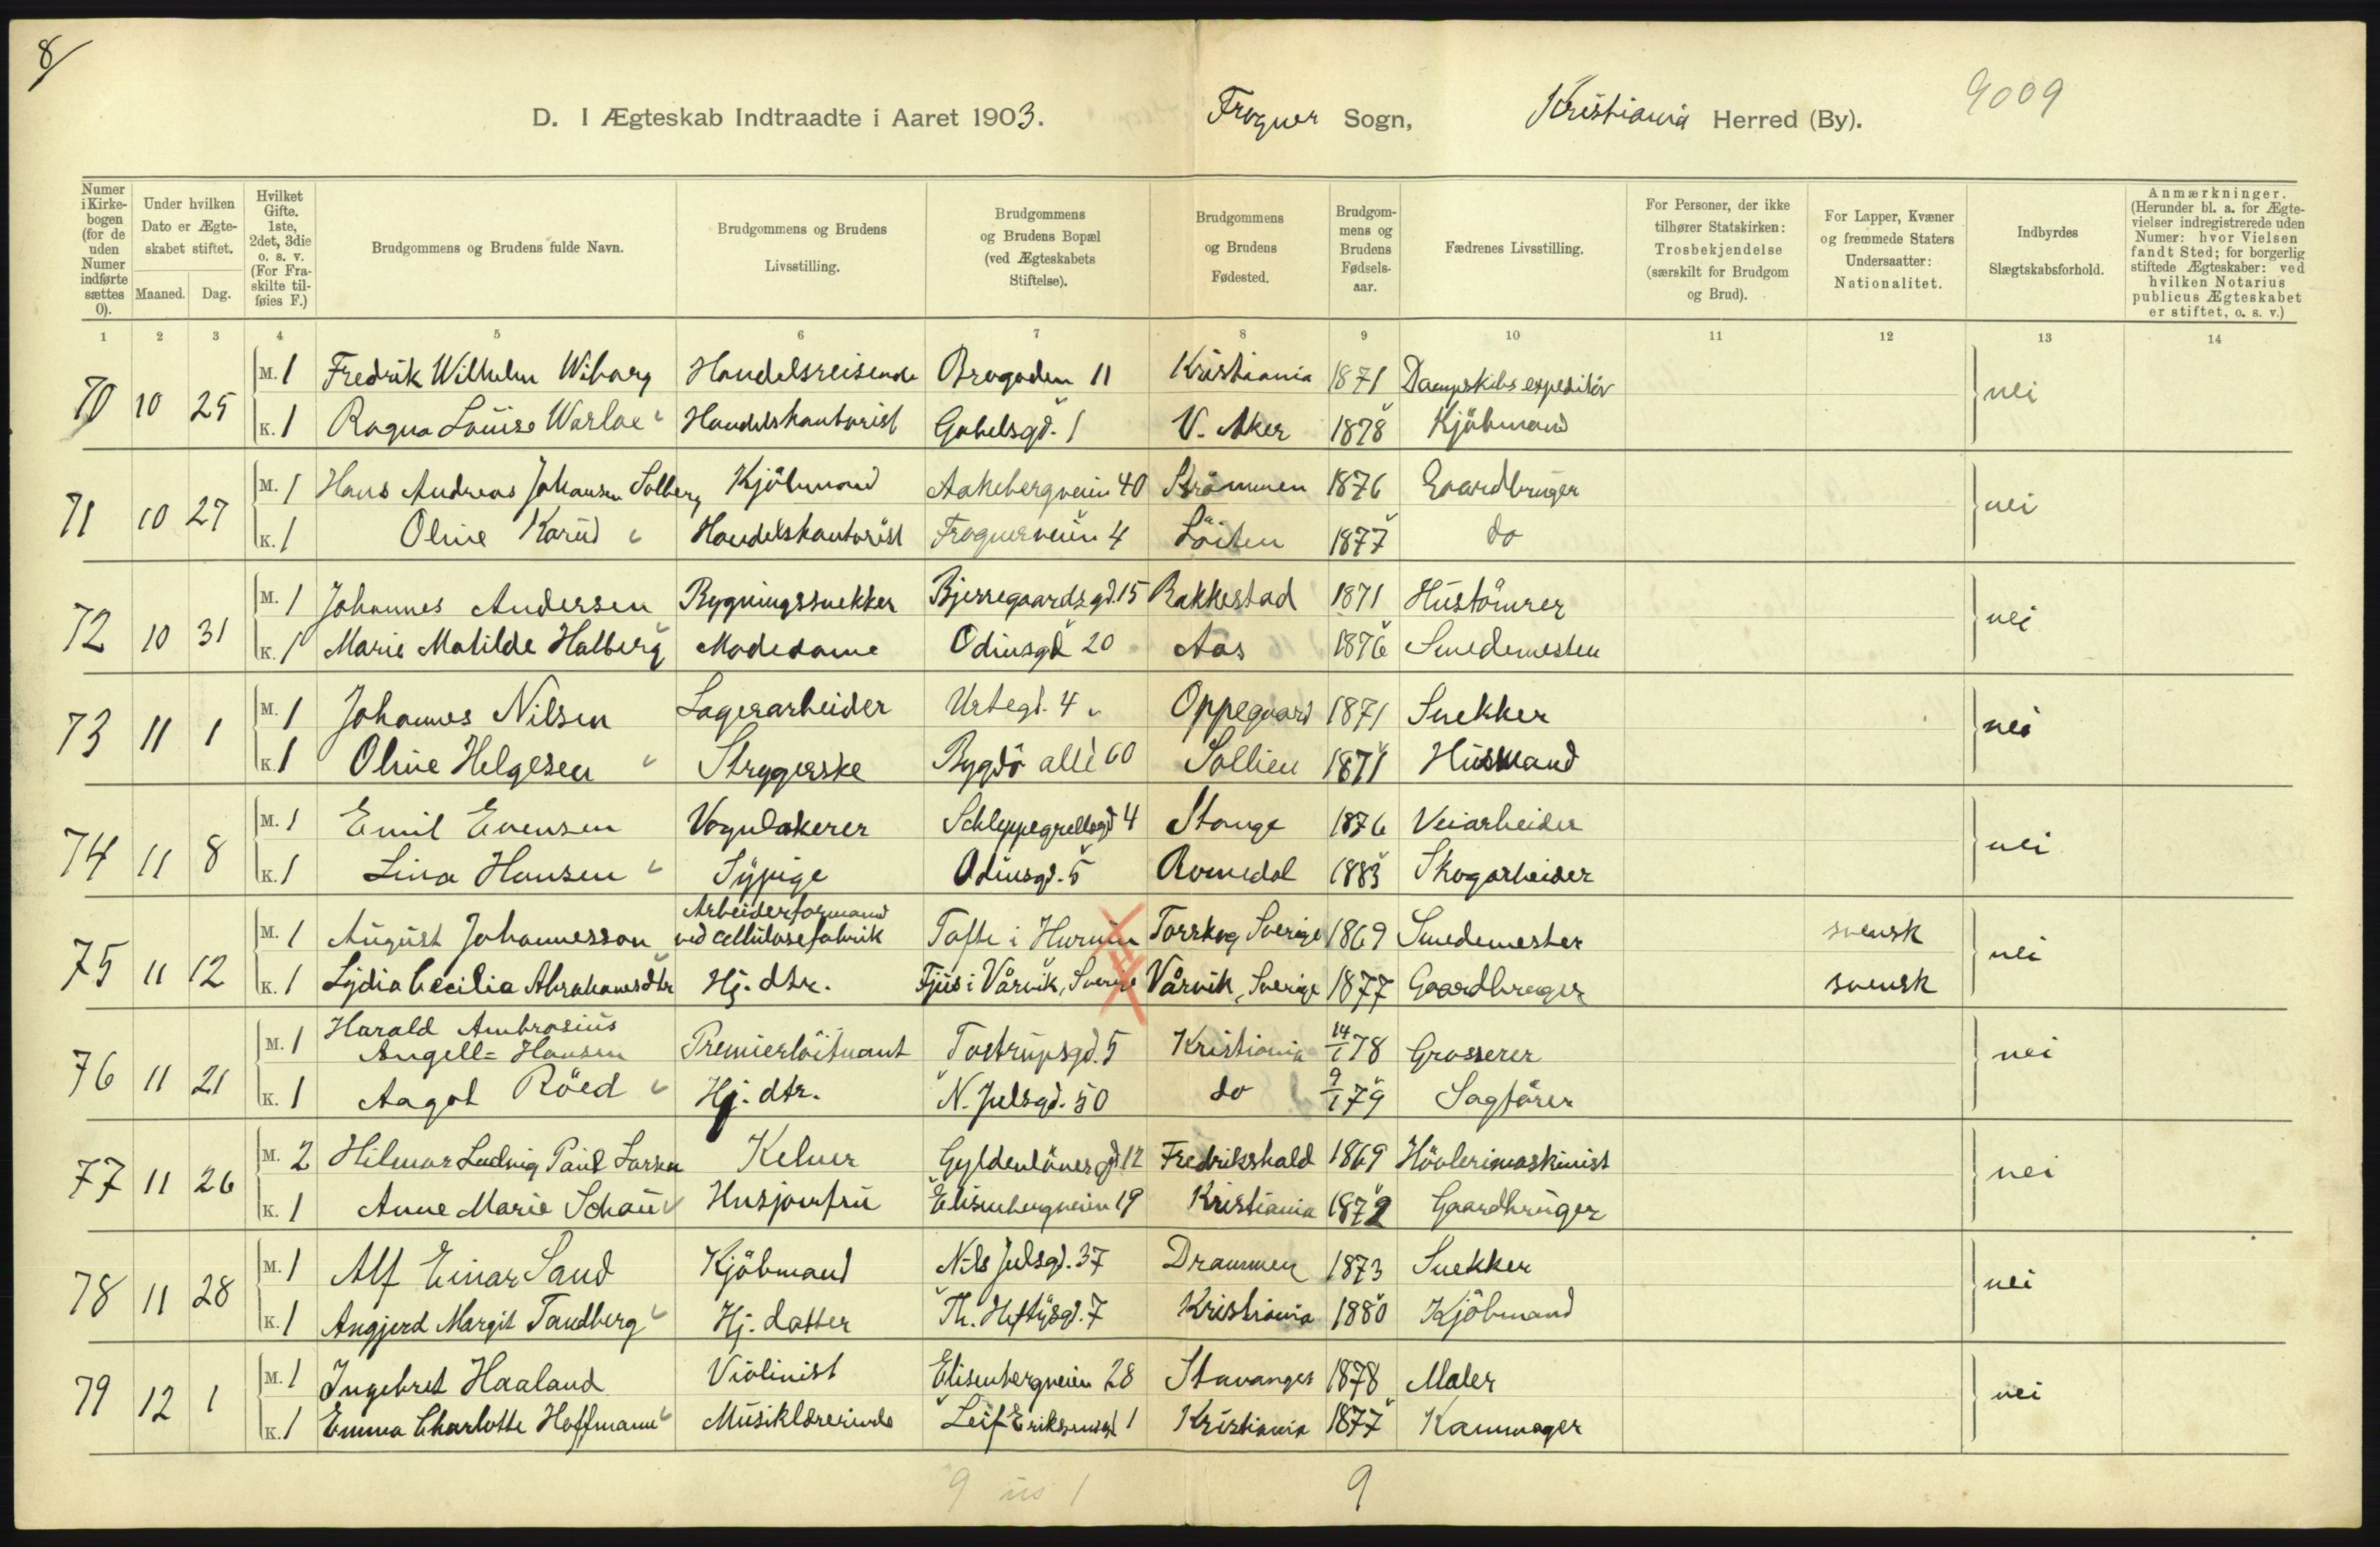 8/
D. I Ægteskab Indtraadte i Aaret 1903. Frogner Sogn, Kristiania Herred (By). 9009
Numer i Kirkebogen (for de uden Numer indførte sættes 0). | Under hvilken Dato er Ægteskabet stiftet. Maaned. Dag. | Hvilket Gifte. 1ste, 2det, 3die o. s. v. (For Fraskilte tilføies F.) | Brudgommens og Brudens fulde Navn. | Brudgommens og Brudens Livsstilling. | Brudgommens og Brudens Bopæl (ved Ægteskabets Stiftelse). | Brudgommens og Brudens Fødested. | Brudgommens og Brudens Fødselsaar. | Fædrenes Livsstilling. | For Personer, der ikke tilhører Statskirken: Trosbekjendelse (særskilt for Brudgom og Brud). | For Lapper, Kvæner og fremmede Staters Undersaatter: Nationalitet. | Indbyrdes Slægtskabsforhold. | Anmærkninger. (Herunder bl. a. for Ægtevielser indregistrerede uden Numer: hvor Vielsen fandt Sted; for borgerlig stiftede Ægteskaber: ved hvilken Notarius publicus Ægteskabet er stiftet, o. s. v.)
1 2 3 4 5 6 7 8 9 10 11 12 13 14
70 10 25 M. 1 Fredrik Wilhelm Wiborg Handelsreisende Brogaden 11 Kristiania 1871 Dampskibsexpeditör nei
K. 1 Ragna Louise Warloe Handelskontorist Gabelsgd. 1 V. Aker 1878 Kjöbmand
71 10 27 M. 1 Hans Andreas Johansen Solberg Kjöbmand Aakebergveien 40 Strömmen 1876 Gaardbruger nei
K. 1 Oline Karud Handelskontorist Frognerveien 4 Löiten 1877 do
72 10 31 M. 1 Johannes Andersen Bygningssnekker Bjerregaardsgd. 15 Rakkestad 1871 Hustömrer nei
K. 1 Marie Matilde Halberg Modedame Odinsgd 20 Aas 1876 Smedemester
73 11 1 M. 1 Johannes Nilsen Lagerarbeider Urtegd. 4 Oppegaard 1871 Snekker nei
K. 1 Oline Helgesen Strygerske Bygdö allé 60 Sollien 1871 Husmand
74 11 8 M. 1 Emil Evensen Vognlakerer Schleppegrellsgd 4 Stange 1876 Veiarbeider nei
K. 1 Lina Hansen Sypige Odinsgd. 5 Romedal 1883 Skogarbeider
75 11 12 M. 1 August Johannesson Arbeiderformand ved cellulosefabrik Tofte i Hurum Torrskog, Sverige 1869 Smedemester svensk nei
K. 1 Lydia Cecilia Abrahamsdtr Hj. dtr. i Vårvik, Sverige Vårvik, Sverige 1877 Gaardbruger svensk
76 11 21 M. 1 Harald Ambrosius Angell-Hansen Premierlöitnant Tostrupsgd. 5 Kristiania 14/1 78 Grosserer nei
K. 1 Aagot Röed Hj. dtr. N. Julsgd. 50 do 9/1 79 Sagförer
77 11 26 M. 2 Hilmar Ludvig Paul Larsen Kelner Gyldenlövesgd 12 Fredrikshald 1869 Hövlerimaskinist nei
K. 1 Anne Marie Schau Husjomfru Elisenbergveien 19 Kristiania 1872 Gaardbruger
78 11 28 M. 1 Alf Einar Sand Kjöbmand Nils Julsgd. 37 Drammen 1873 Snekker nei
K. 1 Angjerd Margit Tandberg Hj. datter Th. Heftysgd. 7 Kristiania 1880 Kjöbmand
79 12 1 M. 1 Ingebret Haaland Violinist Elisenbergveien 28 Stavanger 1878 Maler nei
K. 1 Emma Charlotte Hoffmann Musiklærerinde Leif Eriksensgd 1 Kristiania 1877 Kammager
9 1 9